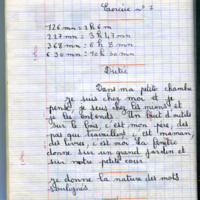 Exercice n° 1
126 mn = 2 h 6 m
227 mn = 3 h 47 mn
368 mn = 6 h 8 mn
630 mn = 10 h 30 mn
Dictée
Dans ma petite chambre
je suis chez moi et je
pense je suis chez les miens et
je les entends Un bruit d'outils
sur le bois c'est mon père
pas qui travaillent c'est maman
des livres, c'est moi La fenêtre
donne sur un grand jardin et
sur notre petite cour
je donne la nature des mots
soulignés